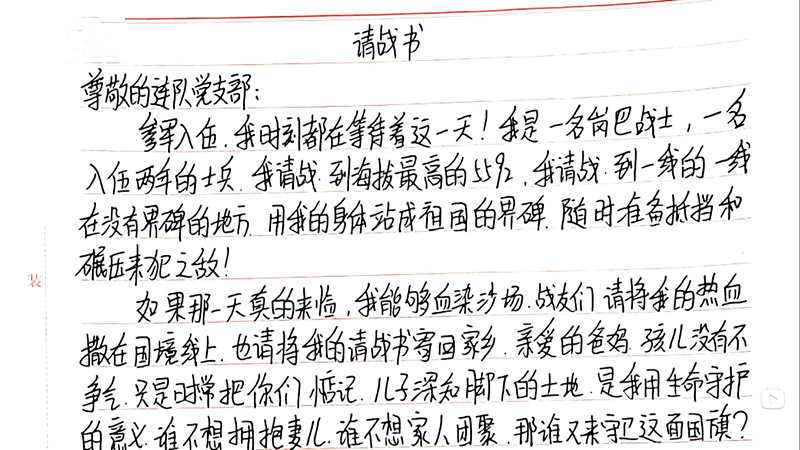 请战书
尊敬的连队党支部：
参军入伍，我时刻都在等待着这一天！我是一名岗巴战士，一名
入伍两年的士兵，我请战，到海拔最高的5592，我请战，到一线的一线
在没有界碑的地方，用我的身体站成祖国的界碑，随时准备抵挡和
碾压来犯之敌！
如果那一天真的来临，我能够血染沙场，战友们请将我的热血
撒在国境线上，也请将我的请战书寄回家乡，亲爱的爸妈，孩儿没有不
争气，只是时常把你们惦记，儿子深知脚下的土地，是我用生命守护
的意义，谁不想拥抱妻儿，谁不想家人团聚，那谁又来守卫这面国旗？
装